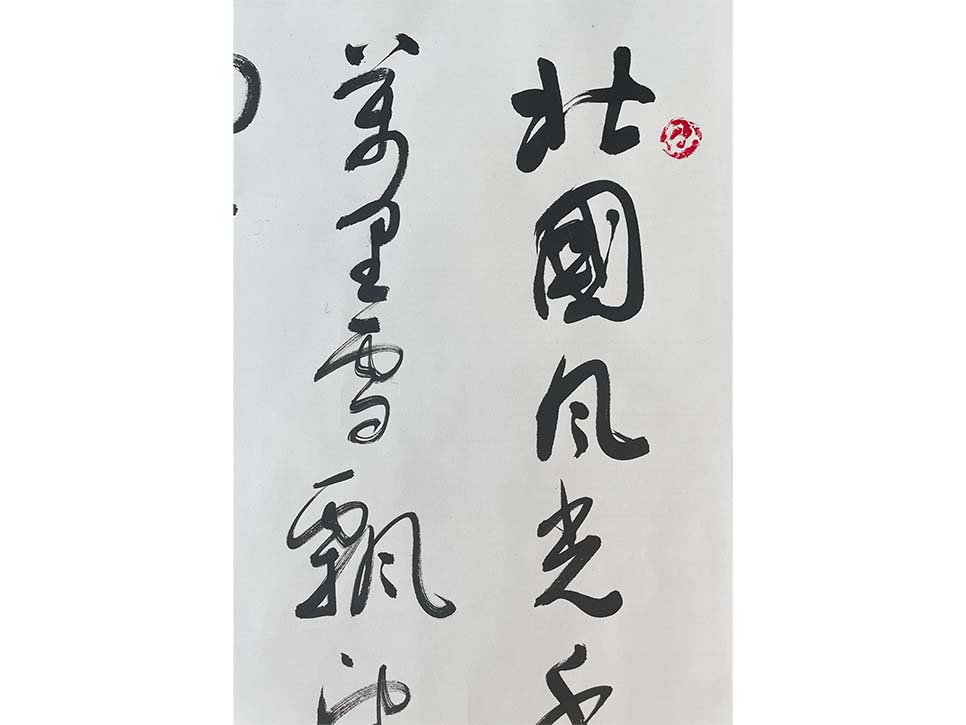 北國風光千
萬里雪飄